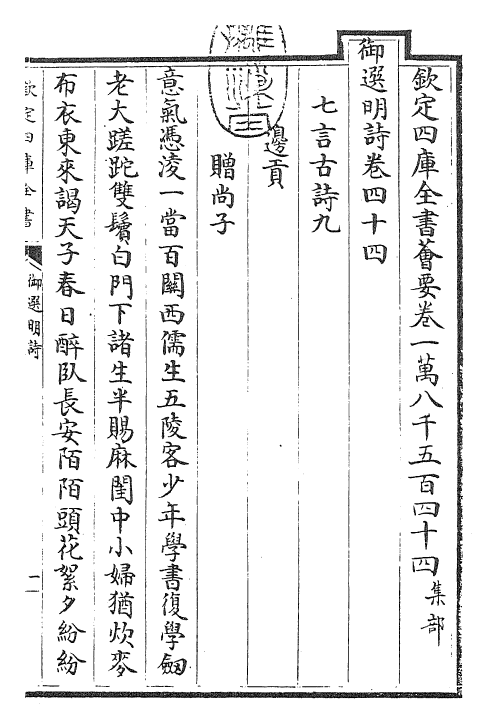 欽定四庫全書薈要卷一萬八千五百四十四集部
御選明詩卷四十四
七言古詩九
邊貢
贈尚子
意氣憑凌一當百關西儒生五陵客少年學書復學劒
老大蹉跎雙鬢白門下諸生半賜麻閨中小婦猶炊麥
布衣東來謁天子春日醉臥長安陌陌頭花絮夕紛紛
欽定四庫全書
御選明詩
一